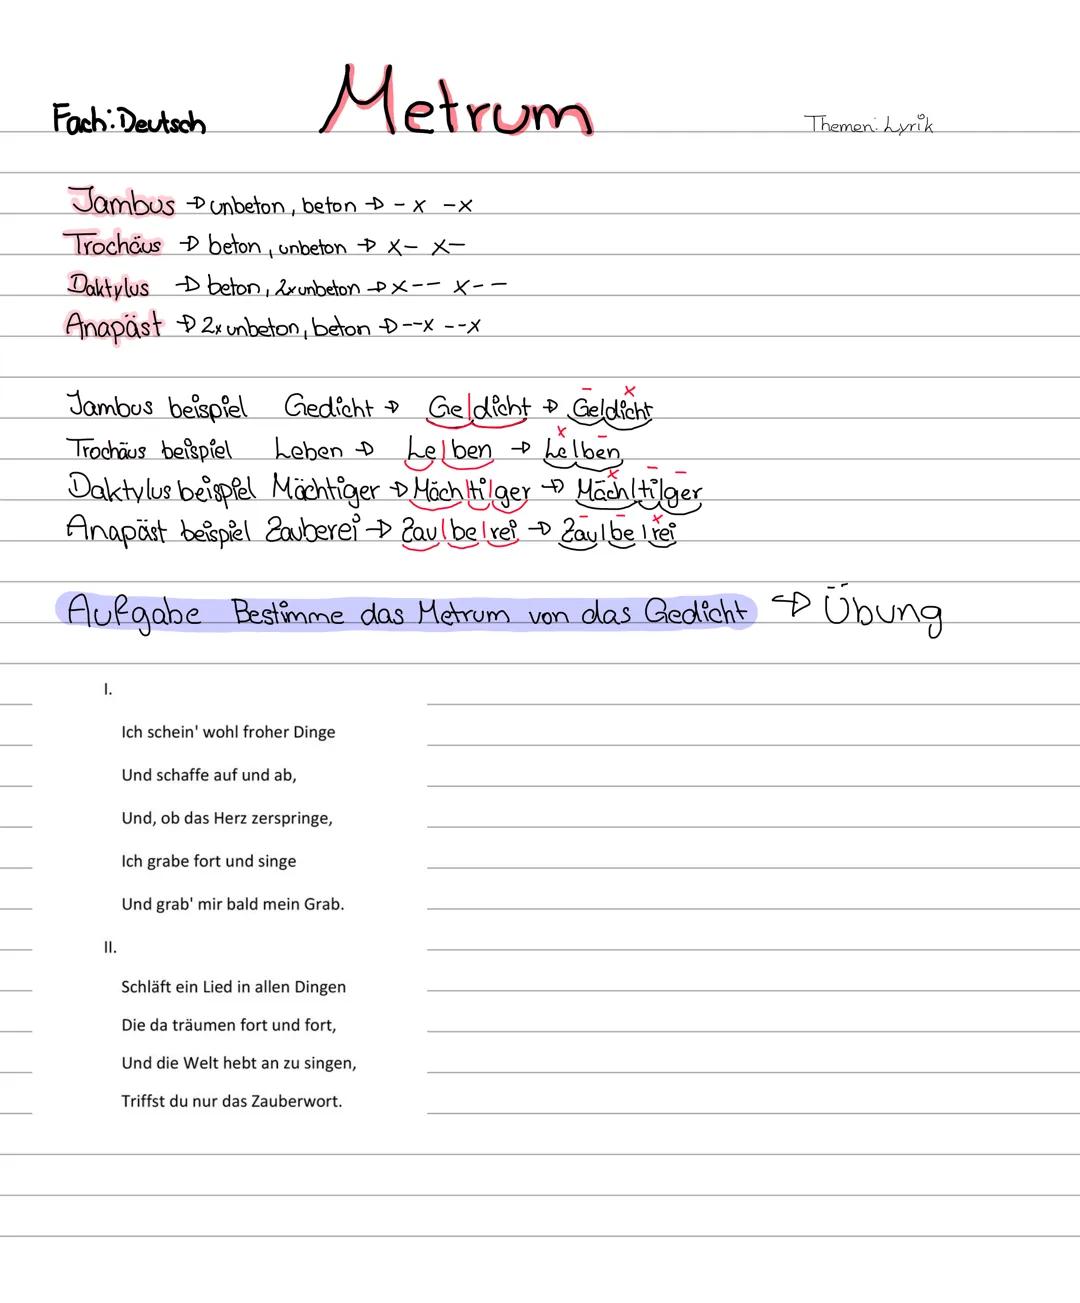 Fach: Deutsch Metrum Themen: Lyrik
Jambus → unbeton, beton → - x -x
Trochäus → beton, unbeton → x- x-
Daktylus → beton, 2x unbeton → x-- x--
Anapäst → 2x unbeton, beton → --x --x
Jambus beispiel Gedicht → Ge|dicht → Ge|dicht
Trochäus beispiel Leben → Le|ben → Le|ben
Daktylus beispiel Mächtiger → Mäch|ti|ger → Mäch|ti|ger
Anapäst beispiel Zauberei → Zau|be|rei → Zau|be|rei
Aufgabe Bestimme das Metrum von das Gedicht → Übung
I.
Ich schein' wohl froher Dinge
Und schaffe auf und ab,
Und, ob das Herz zerspringe,
Ich grabe fort und singe
Und grab' mir bald mein Grab.
II.
Schläft ein Lied in allen Dingen
Die da träumen fort und fort,
Und die Welt hebt an zu singen,
Triffst du nur das Zauberwort.